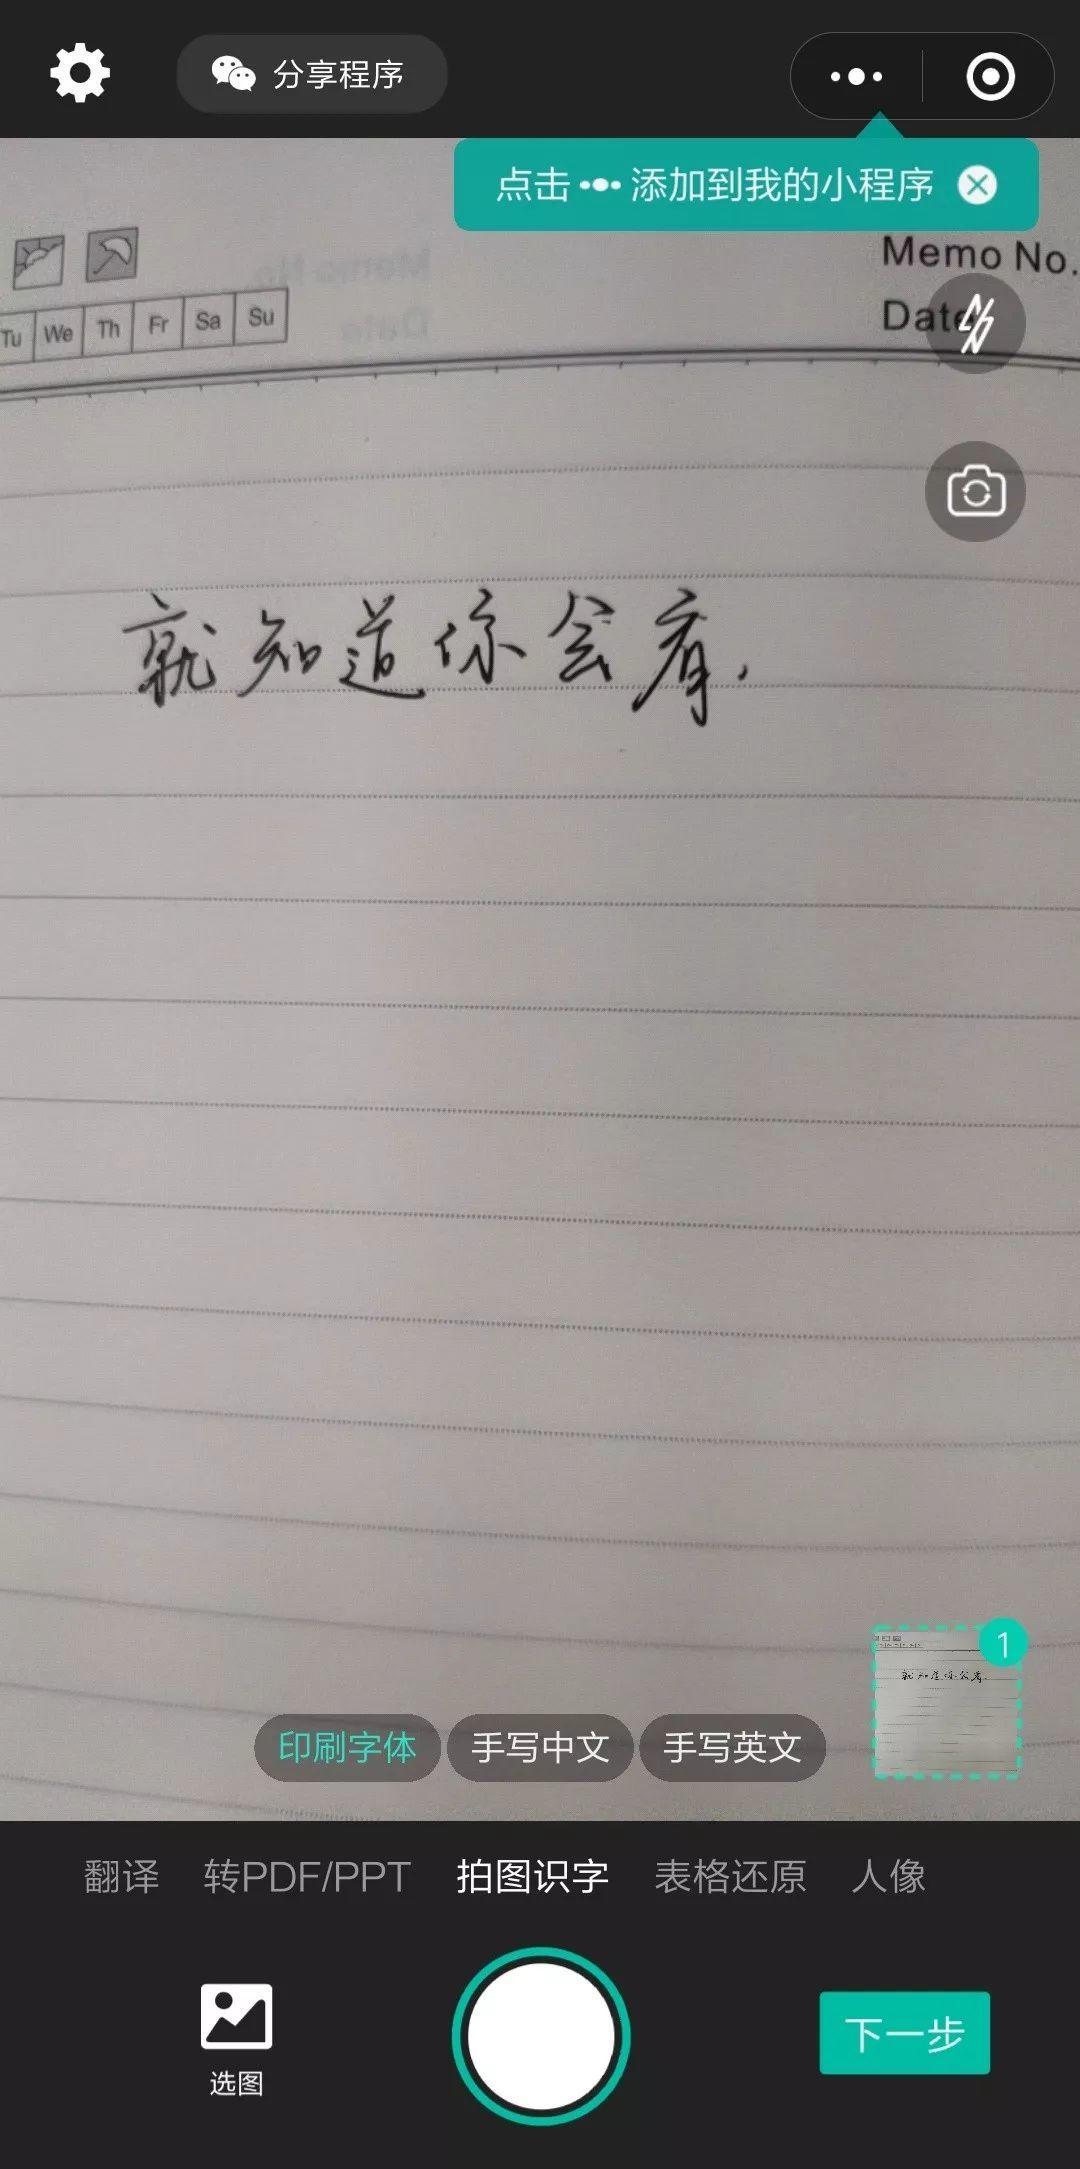 分享程序
点击 ••• 添加到我的小程序
Memo No.
Date
Tu We Th Fr Sa Su
就知道你会看.
1
印刷字体 手写中文 手写英文
翻译 转PDF/PPT 拍图识字 表格还原 人像
选图
下一步